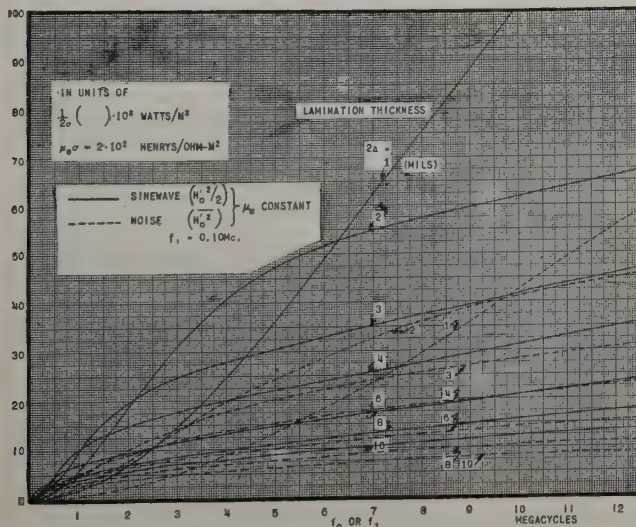 100
90
80
70
60
50
40
30
20
10
0
IN UNITS OF
1/2σ ( )·10⁸ WATTS/M³
μ₀σ = 2·10² HENRYS/OHM-M²
SINEWAVE (H₀'²/2)
NOISE (H₀'²)
} μₛ CONSTANT
f₁ = 0.10Mc.
LAMINATION THICKNESS
2a =
1 (MILS)
2
3
4
6
8
10
2
1
3
4
6
8
10
1 2 3 4 5 6 7 8 9 10 11 12
f₀ OR f₂
MEGACYCLES